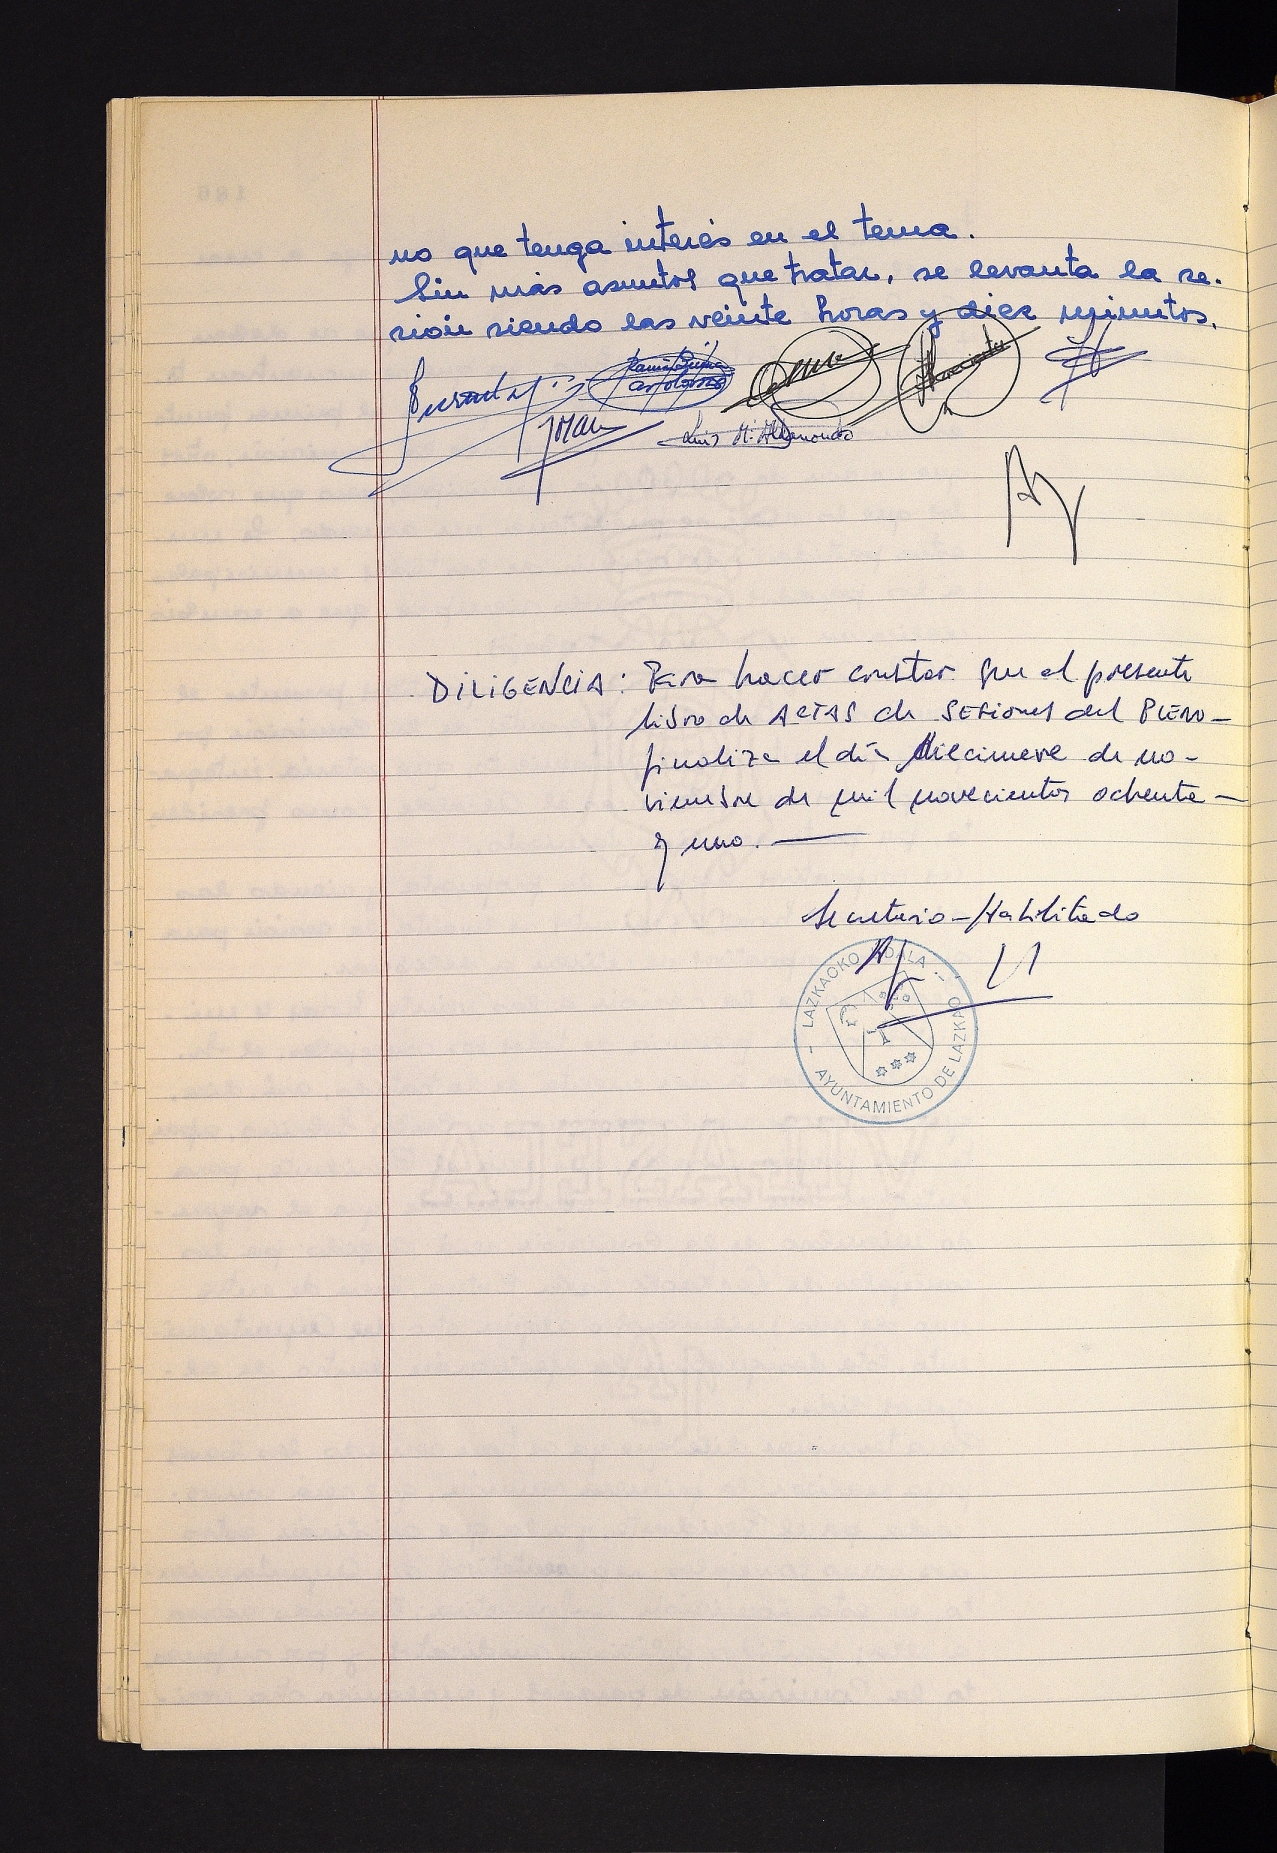 no que tenga interés en el tema.
Sin más asuntos que tratar, se levanta la se-
sión siendo las veinte horas y diez minutos.
Luis Mª Aldamondo
DILIGENCIA: Para hacer constar que el presente
libro de ACTAS de SESiones del PLENO —
finaliza el día diecinueve de no-
viembre de mil novecientos ochenta —
y uno. —
Secretario-Habilitado
LAZKAOKO UDALA
AYUNTAMIENTO DE LAZKAO